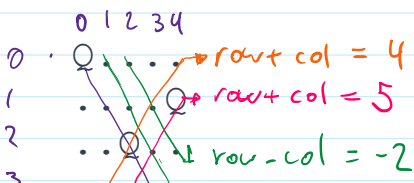 0 1 2 3 4
0 Q → row + col = 4
1 Q → row + col = 5
2 Q row - col = -2
3